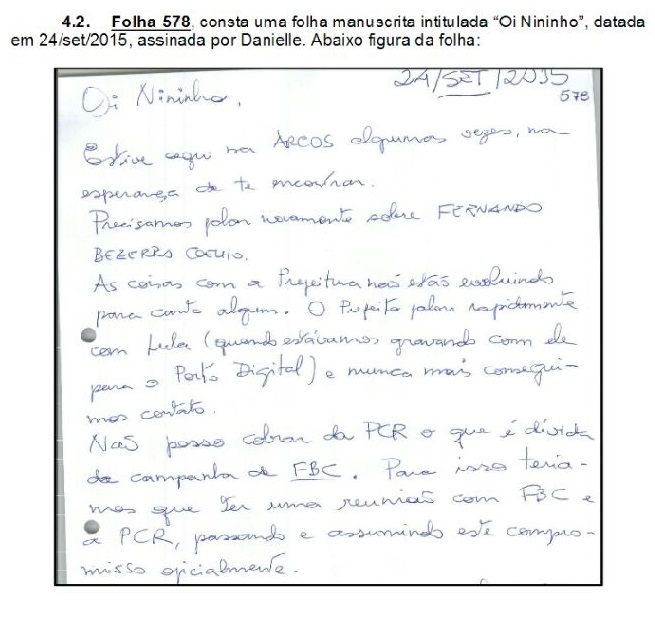 4.2. Folha 578, consta uma folha manuscrita intitulada “Oi Nininho”, datada
em 24/set/2015, assinada por Danielle. Abaixo figura da folha:
24/SET/2015
578
Oi Nininho,
Estive aqui na ARCOS algumas vezes, na
esperança de te encontrar.
Precisamos falar novamente sobre FERNANDO
BEZERRA COELHO.
As coisas com a Prefeitura não estão evoluindo
para canto algum. O Prefeito falou rapidamente
com Lula (quando estávamos gravando com ele
para o Porto Digital) e nunca mais consegui-
mos contato.
Não posso cobrar da PCR o que é dívida
da campanha de FBC. Para isso tería-
mos que ter uma reunião com FBC e
a PCR, passando e assumindo este compro-
misso oficialmente.